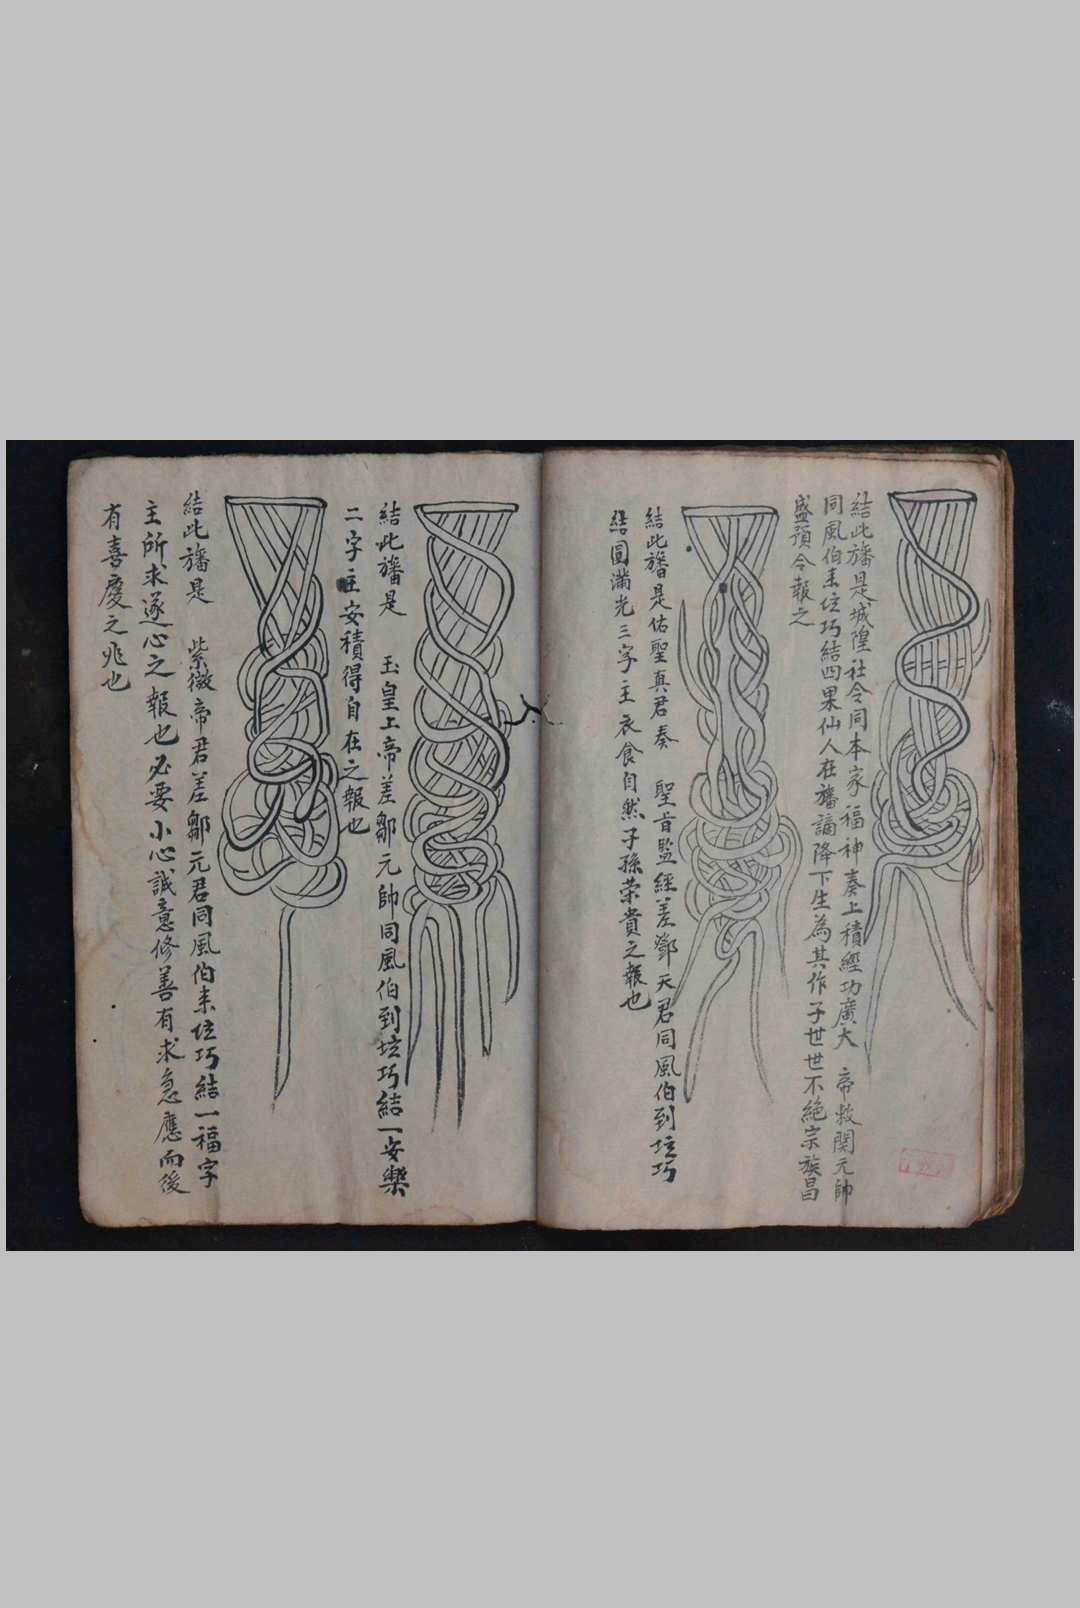 結此旛是城隍社令同本家福神奏上積經功廣大 帝救関元帥
同風伯來坛巧結四果仙人在旛謫降下生為其作子世世不絕宗族昌
盛預令報之
結此旛是佑聖真君奏 聖旨監經差鄧天君同風伯到坛巧
結圓滿光三字主衣食自然子孫荣貴之報也
結此旛是 玉皇上帝差鄒元帥同風伯到坛巧結一安樂
二字主安積得自在之報也
結此旛是 紫微帝君差鄒元君同風伯來坛巧結一福字
主所求遂心之報也必要小心誠意修善有求急應而後
有喜慶之兆也